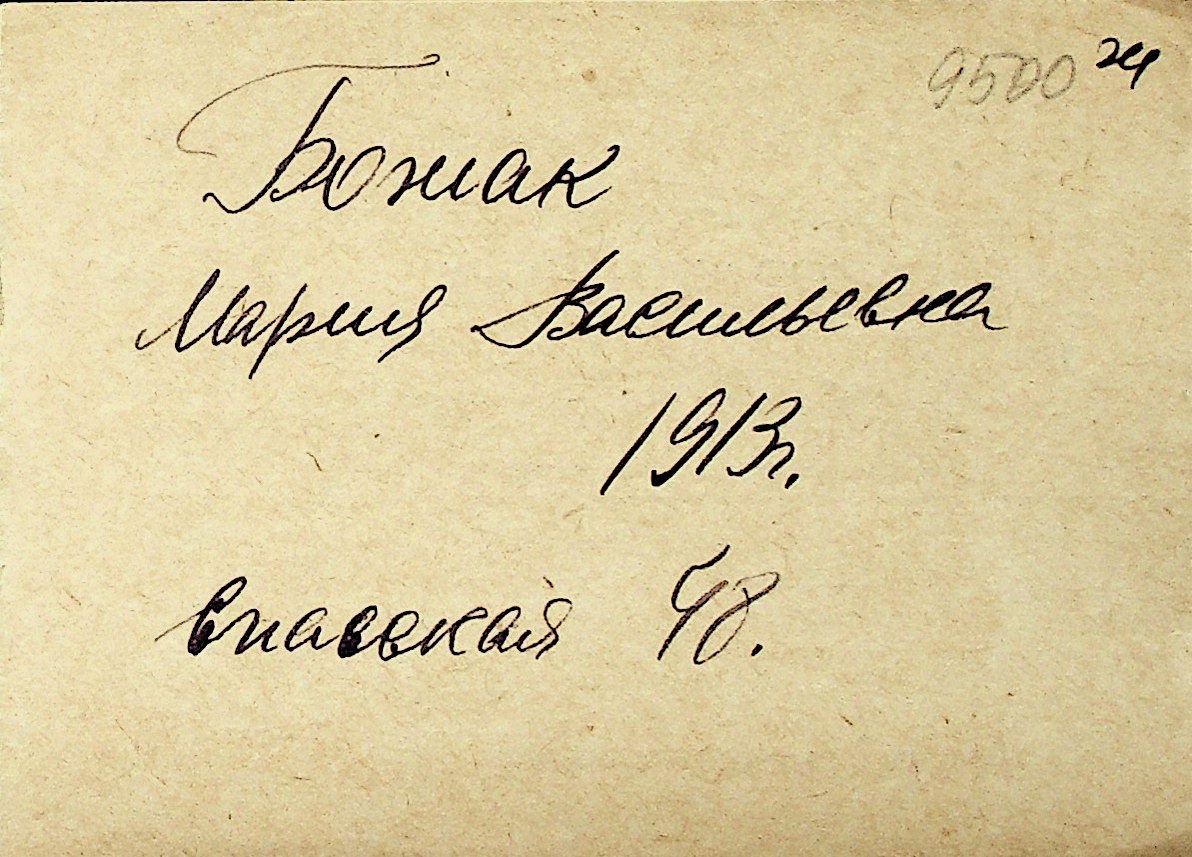 9500 ж
Божак
Мария Васильевна
1913г.
Спасская 48.